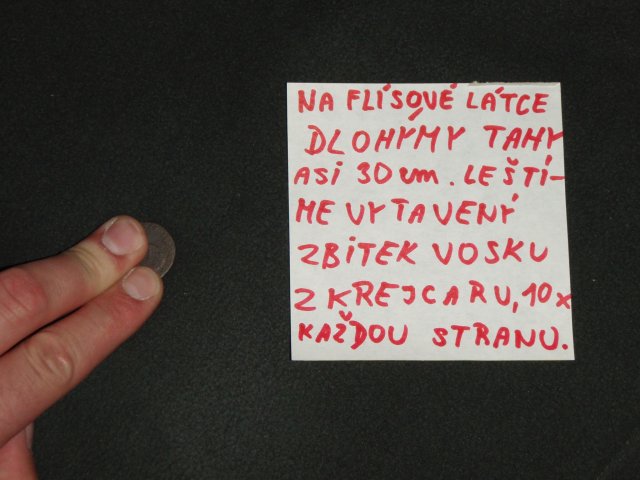 NA FLÍSOVÉ LÁTCE
DLOHÝMY TAHY
ASI 30 cm. LEŠTÍ-
ME VYTAVENÝ
ZBITEK VOSKU
Z KREJCARU, 10x
KAŽDOU STRANU.